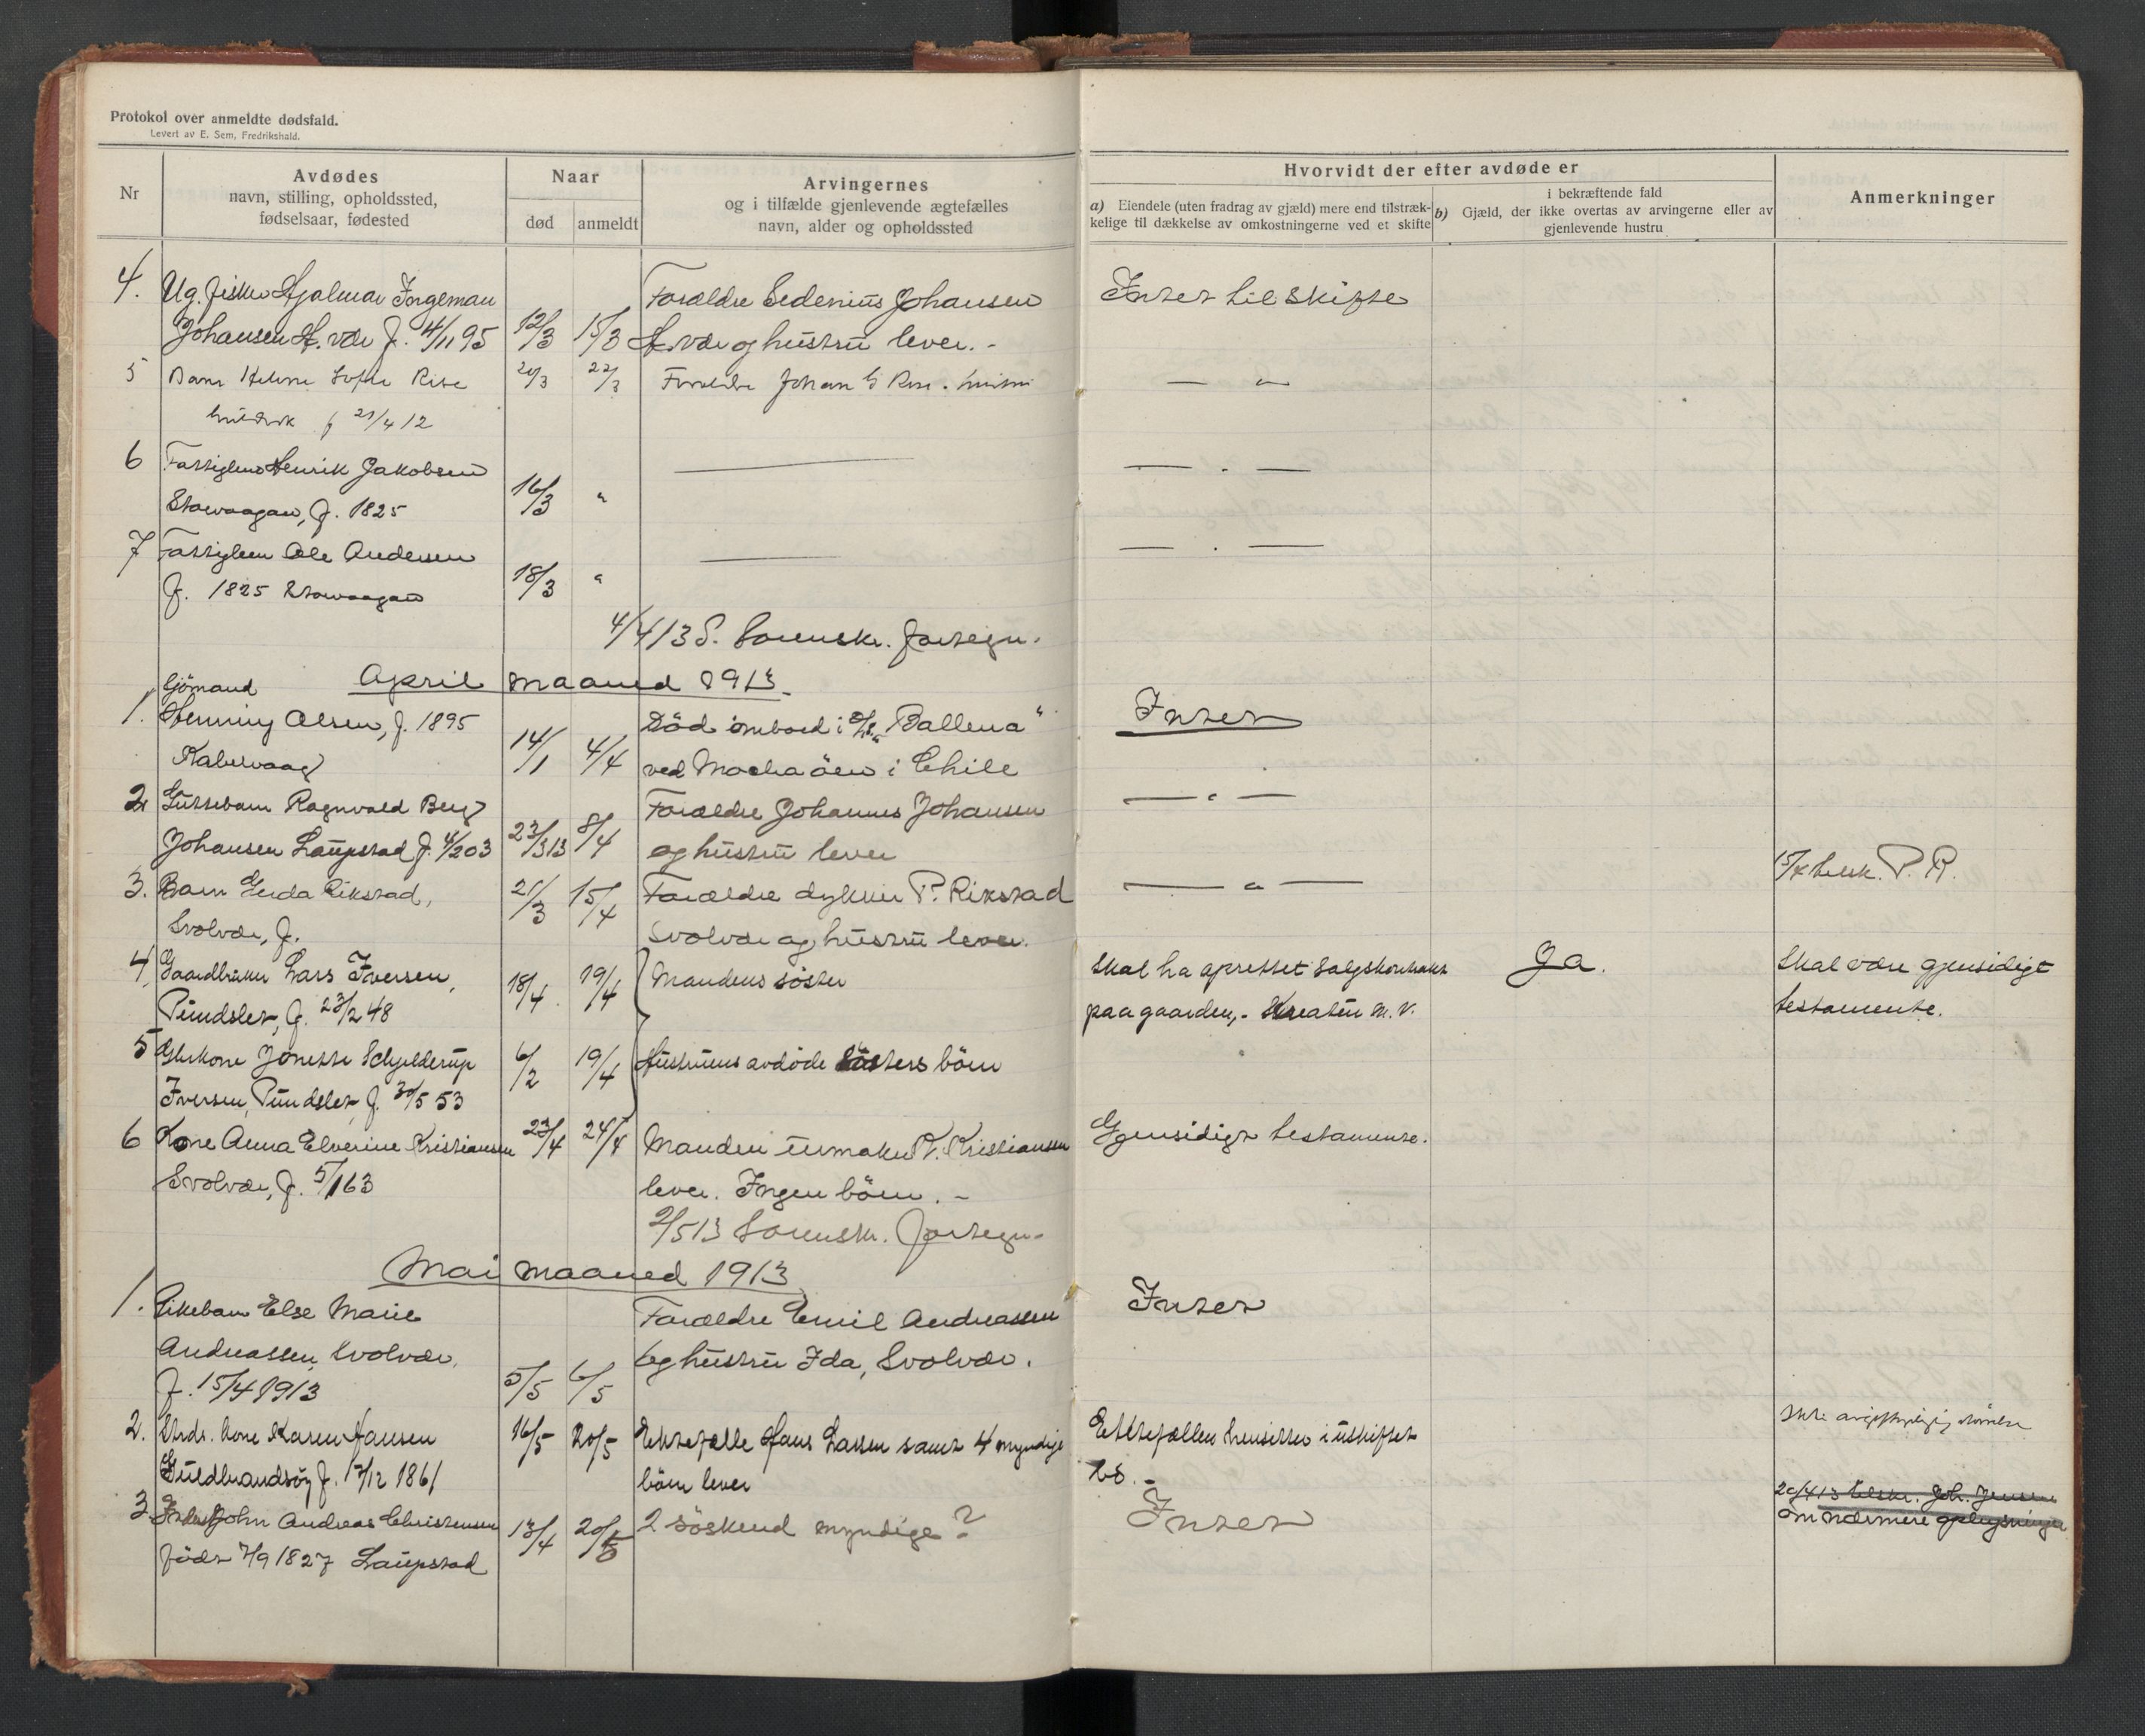 Protokol over anmeldte dødsfald.
Levert av E. Sem, Fredrikshald.
Nr
Avdødes
navn, stilling, opholdssted,
fødselsaar, fødested
Naar
død
anmeldt
Arvingernes
og i tilfælde gjenlevende ægtefælles
navn, alder og opholdssted
Hvorvidt der efter avdøde er
a) Eiendele (uten fradrag av gjæld) mere end tilstræk-
kelige til dækkelse av omkostningerne ved et skifte
i bekræftende fald
b) Gjæld, der ikke overtas av arvingerne eller av
gjenlevende hustru
Anmerkninger
4. Ug. fisker Hjalmar Ingeman Forældre Edenius Johansen Intet til skifte
Johansen H.vær f. 4/11 95 12/3 15/3 H.vær og hustru lever. -
5 Barn Helene Sofie Rise 20/3 22/3 Forældre Johan G Rise . hustru — " —
f 21/4 12
6 Fattiglem Henrik Jakobsen — — . —
Storvaagan, f. 1825 16/3 "
7 Fattiglem Ole Andersen — — . —
f. 1825 Storvaagan 18/3 "
4/4 13 S. Sorensk. fortegn.
April maaned 1913.
Sjömand
1. Henning Olsen, f. 1895 Död ombord i "Ballena" Intet
Kabelvaag 14/1 4/4 ved Mocha öen i Chile
2 Guttebarn Ragnvald Berg Forældre Johannes Johansen — " —
Johansen Laupstad f. 4/2 03 23/3 13 8/4 og hustru lever
3. Barn Gerda Rikstad, 21/3 15/4 Forældre dykker P. Rikstad — " — 15/4 tilsk. P. R.
Svolvær, f. Svolvær og hustru lever.
4, Gaardbruker Lars Iversen, 18/4 19/4 Mandens söster Skal ha oprettet salgskontrakt Ja. Skal være gjensidigt
Pundslet, f. 23/2 48 paa gaarden, - Kreatur m.v. testamente.
5 Gbrkone Jonette Schjelderup 6/2 19/4 Hustruens avdöde sösters börn
Iversen, Pundslet f. 30/5 53
6 Kone Anna Elverine Kristiansen 23/4 24/4 Manden urmaker K. Kristiansen Gjensidigt testamente.
Svolvær, f. 5/1 63 lever. Ingen börn. -
2/5 13 Sorensk. fortegn.
Mai maaned 1913
1. Pikebarn Else Marie Forældre Emil Andreassen Intet
Andreassen, Svolvær, og hustru Ida, Svolvær.
f. 15/4 1913 5/5 6/5
2. Kone Karen Hansen 16/5 20/5 Ektefælle Hans Larsen samt 4 myndige Ektefællen hensitter i uskiftet
Guldbrandsöy f. 17/12 1861 börn lever bo. -
3. John Andreas Christensen 13/4 20/5 2 söskend myndige? Intet 20/4 13 tilskr. Joh. Jensen
född 7/9 1827 Laupstad om nærmere oplysninger